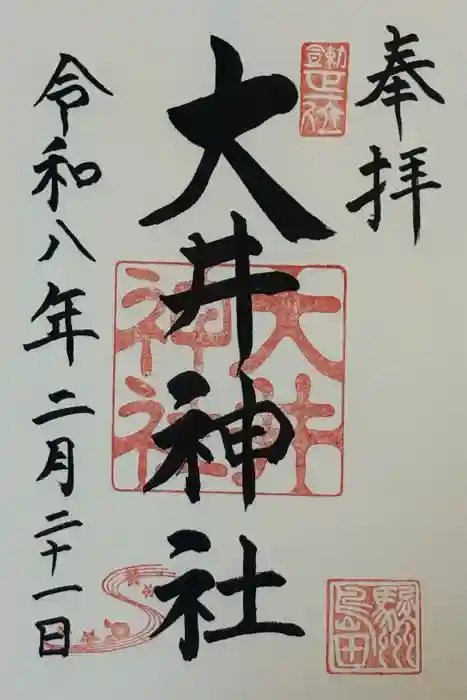 奉拝
大井神社
大井神社
駿州島田
令和八年二月二十一日